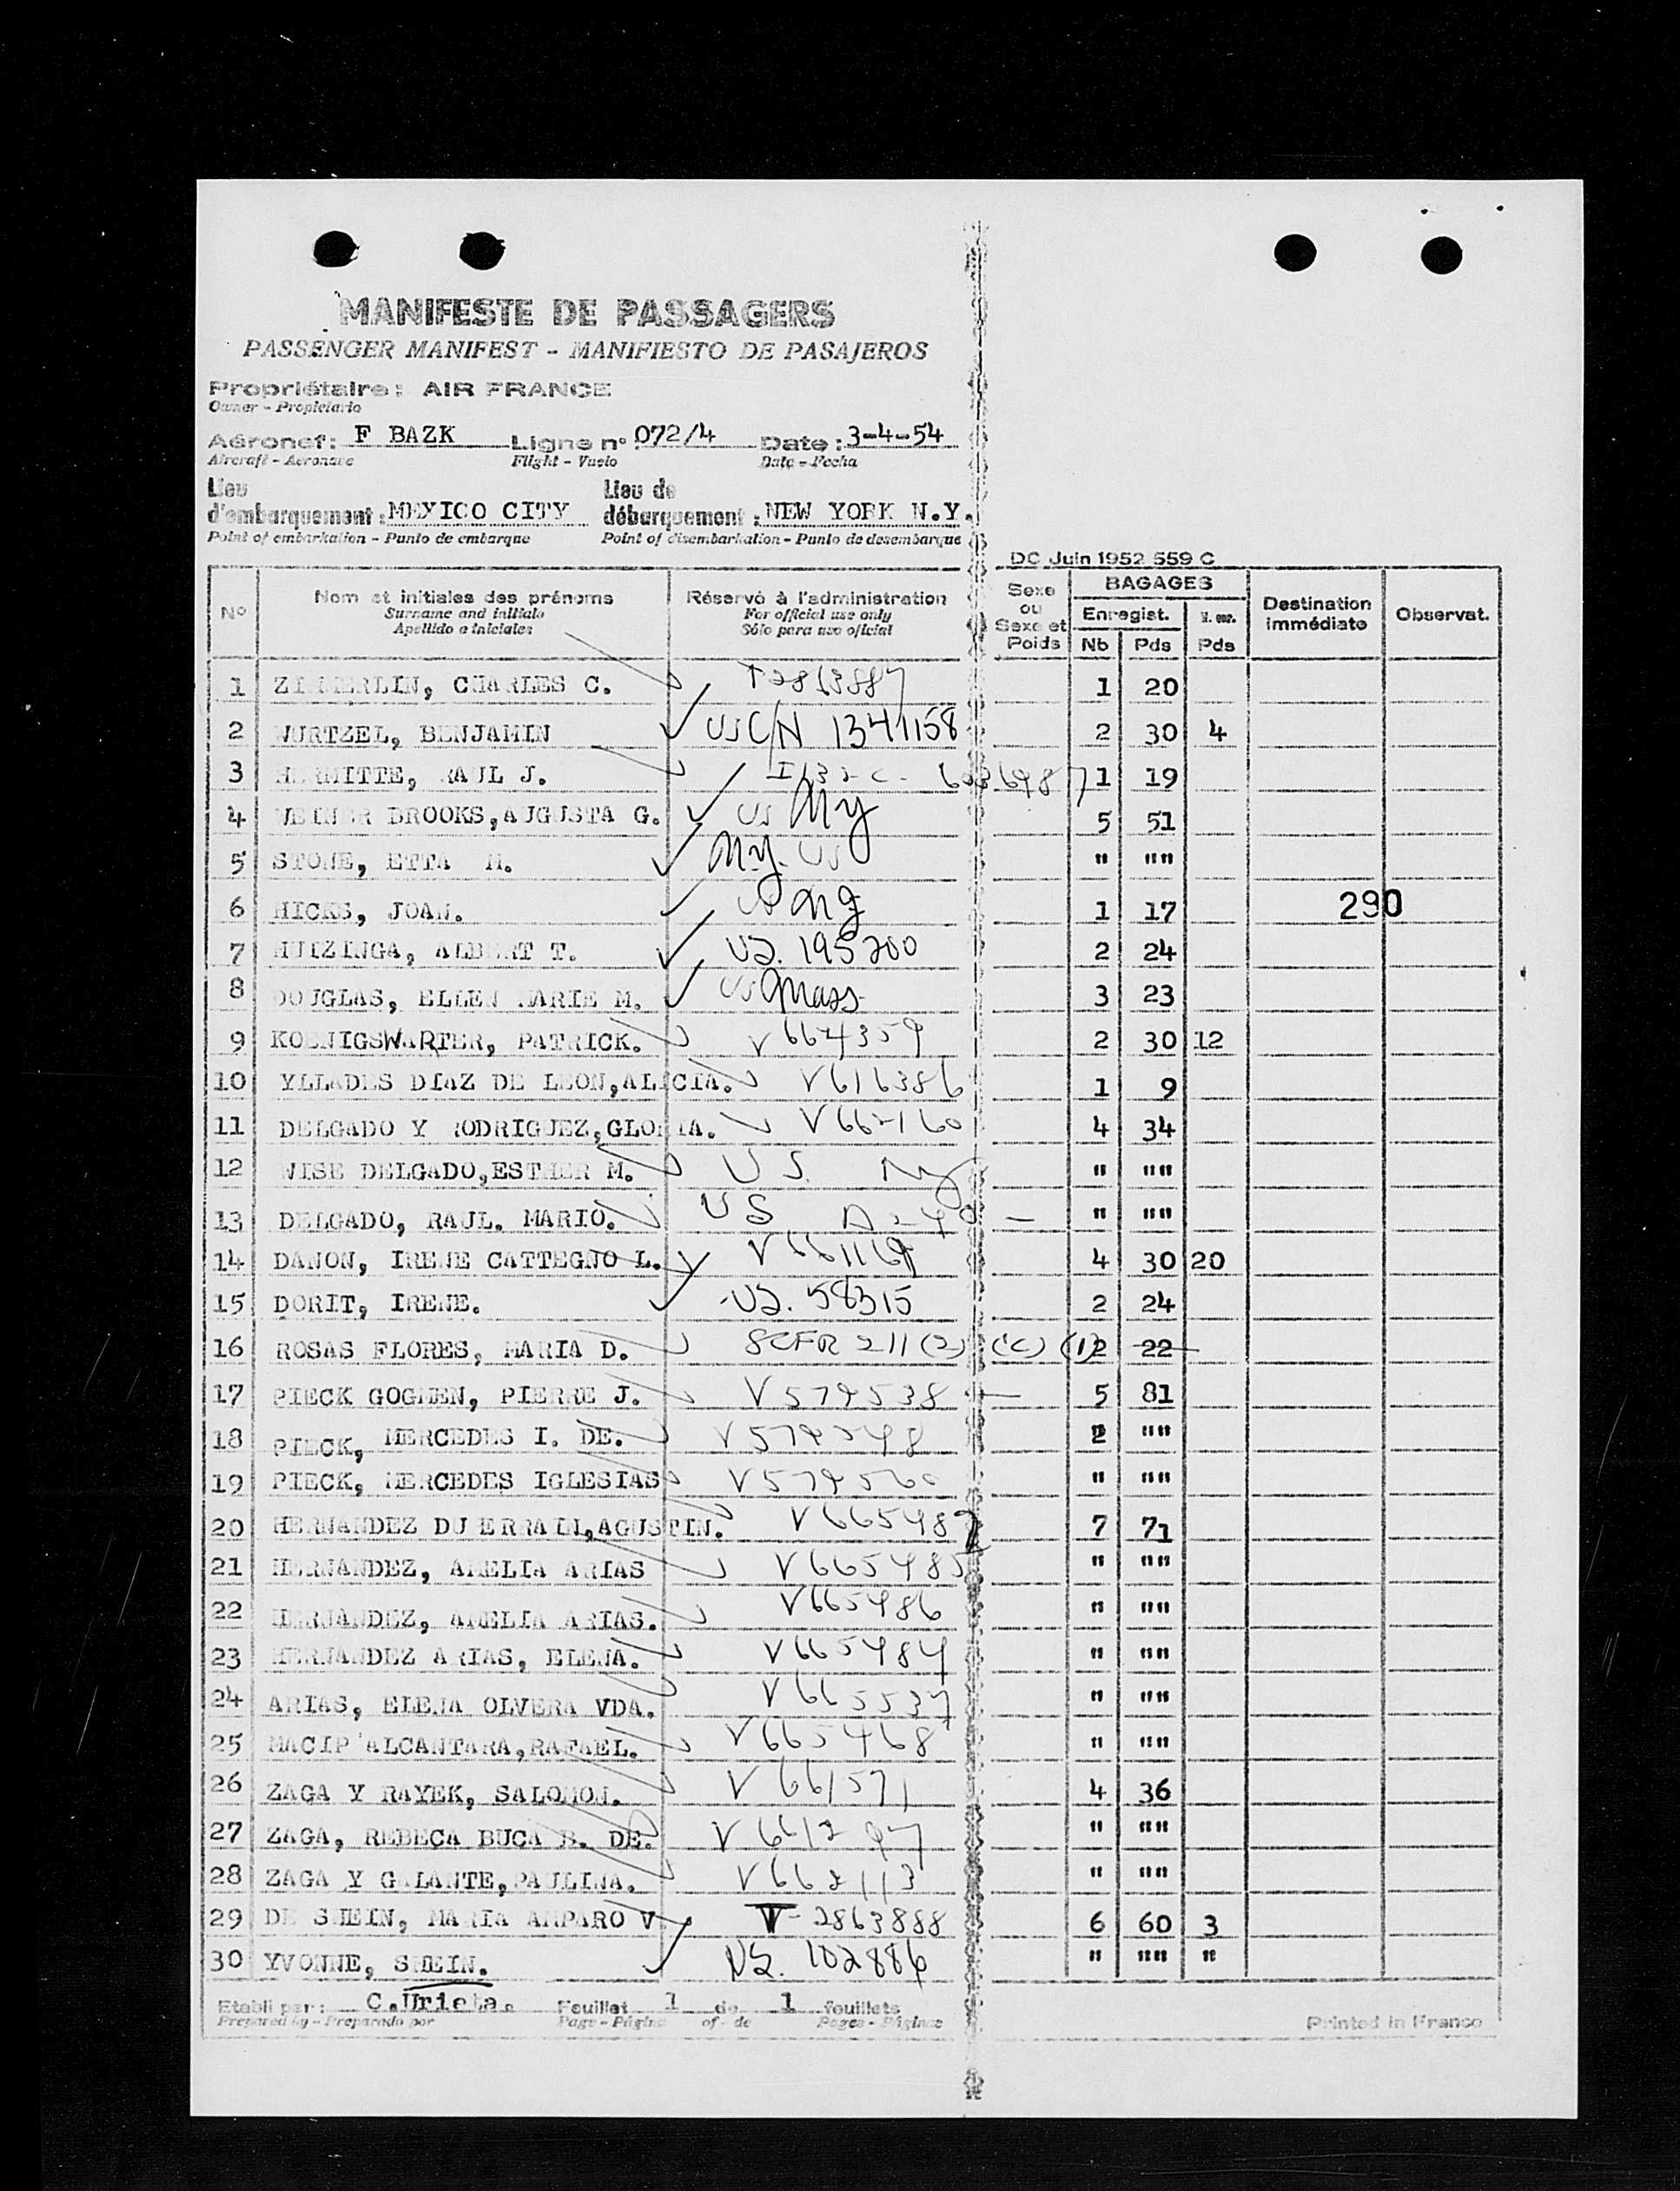 MANIFESTE DE PASSAGERS
PASSENGER MANIFEST - MANIFIESTO DE PASAJEROS
Propriétaire : AIR FRANCE
Owner - Propietario
Aéronef : F BAZK Ligne n° 072/4 Date : 3-4-54
Aircraft - Aeronave Flight - Vuelo Date - Fecha
Lieu d'embarquement : MEXICO CITY Lieu de débarquement : NEW YORK N.Y.
Point of embarkation - Punto de embarque Point of disembarkation - Punto de desembarque
DC Juin 1952 559 C
N° Nom et initiales des prénoms Réservé à l'administration Sexe ou Sexe et Poids BAGAGES Destination immédiate Observat.
Surname and initials For official use only Enregist. N. enr.
Apellido e iniciales Sólo para uso oficial Nb Pds Pds
1 ZIMMERLIN, CHARLES C. T2813887 1 20
2 WURTZEL, BENJAMIN USC/N 1341158 2 30 4
3 HERMITTE, RAUL J. 1 19
4 BROOKS, AUGUSTA G. US NY 5 51
5 STONE, ETTA M. NY. US " ""
6 HICKS, JOAN. US NY 1 17 290
7 HUIZINGA, ALBERT T. US. 195200 2 24
8 DOUGLAS, ELLEN MARIE M. US Mass 3 23
9 KOENIGSWARTER, PATRICK. V664359 2 30 12
10 YLLADES DIAZ DE LEON, ALICIA. V616386 1 9
11 DELGADO Y RODRIGUEZ, GLORIA. V662160 4 34
12 WISE DELGADO, ESTHER M. US. NY " ""
13 DELGADO, RAUL. MARIO. US " ""
14 DANON, IRENE CATTEGNO L. 4 30 20
15 DORIT, IRENE. US. 58315 2 24
16 ROSAS FLORES, MARIA D. 8CFR 211 (2) (c) (1) 2 22
17 PIECK GOGMEN, PIERRE J. V579538 5 81
18 PIECK, MERCEDES I. DE. 2 ""
19 PIECK, MERCEDES IGLESIAS " ""
20 HERNANDEZ AGUSTIN. V665487 7 71
21 HERNANDEZ, AMELIA ARIAS V665485 " ""
22 HERNANDEZ, AMELIA ARIAS. V665486 " ""
23 HERNANDEZ ARIAS, ELENA. V665484 " ""
24 ARIAS, ELENA OLVERA VDA. V665537 " ""
25 MACIP ALCANTARA, RAFAEL. V665468 " ""
26 ZAGA Y RAYEK, SALOMON. V661571 4 36
27 ZAGA, REBECA BUCA B. DE. " ""
28 ZAGA Y GALANTE, PAULINA. V662113 " ""
29 DE SHEIN, MARIA AMPARO V. V-2863888 6 60 3
30 YVONNE, SHEIN. US. 102886 " "" "
Etabli par : C.Urieta. Feuillet 1 de 1 feuillets
Prepared by - Preparado por Page - Página of - de Pages - Páginas
Printed in France